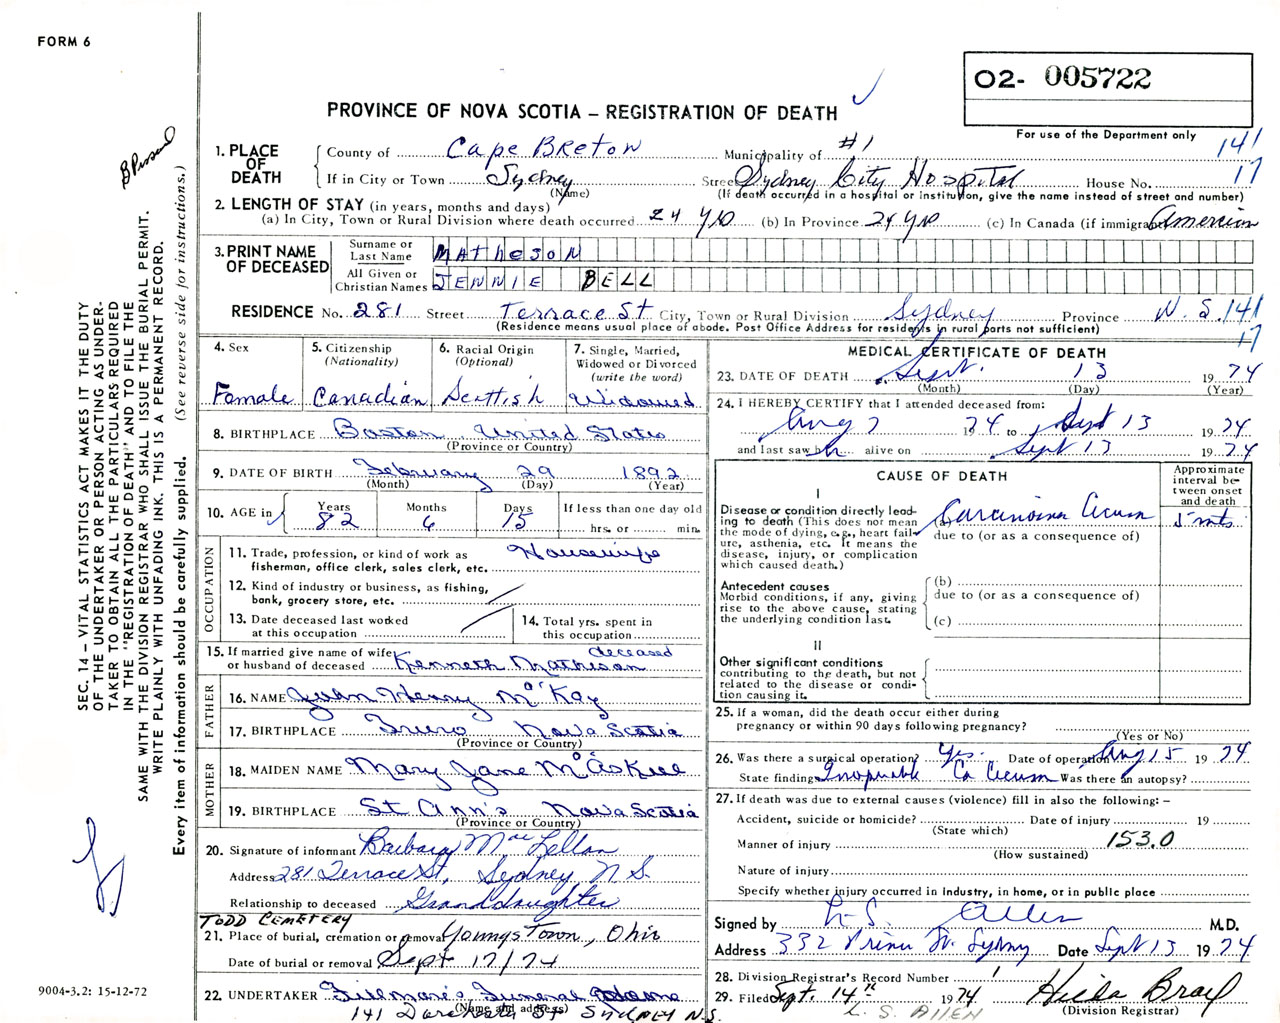 FORM 6
O2- 005722
PROVINCE OF NOVA SCOTIA – REGISTRATION OF DEATH
For use of the Department only
141
17
1. PLACE OF DEATH
County of Cape Breton Municipality of #1
If in City or Town Sydney Street Sydney City Hospital House No.
(Name) (If death occurred in a hospital or institution, give the name instead of street and number)
2. LENGTH OF STAY (in years, months and days)
(a) In City, Town or Rural Division where death occurred 24 yrs (b) In Province 24 yrs (c) In Canada (if immigrant)
3. PRINT NAME OF DECEASED
Surname or Last Name MATHESON
All Given or Christian Names JENNIE BELL
RESIDENCE No. 281 Street Terrace St City, Town or Rural Division Sydney Province N.S. 141
(Residence means usual place of abode. Post Office Address for residents in rural parts not sufficient)
17
4. Sex
Female
5. Citizenship
(Nationality)
Canadian
6. Racial Origin
(Optional)
Scottish
7. Single, Married, Widowed or Divorced
(write the word)
Widowed
8. BIRTHPLACE Boston, United States
(Province or Country)
9. DATE OF BIRTH February 29 1892
(Month) (Day) (Year)
10. AGE in
Years Months Days If less than one day old
82 6 15 hrs. or min.
OCCUPATION
11. Trade, profession, or kind of work as Housewife
fisherman, office clerk, sales clerk, etc.
12. Kind of industry or business, as fishing,
bank, grocery store, etc.
13. Date deceased last worked
at this occupation
14. Total yrs. spent in
this occupation
15. If married give name of wife deceased
or husband of deceased Kenneth Matheson
FATHER
16. NAME John Henry McKay
17. BIRTHPLACE Truro Nova Scotia
(Province or Country)
MOTHER
18. MAIDEN NAME Mary Jane McAskill
19. BIRTHPLACE St Ann's Nova Scotia
(Province or Country)
20. Signature of informant Barbara MacLellan
Address 281 Terrace St, Sydney N S.
Relationship to deceased Granddaughter
TODD CEMETERY
21. Place of burial, cremation or removal Youngstown, Ohio
Date of burial or removal Sept 17/74
22. UNDERTAKER Fillmore's Funeral Home
(Name and address)
141 Dorchester St SYDNEY N.S.
MEDICAL CERTIFICATE OF DEATH
23. DATE OF DEATH Sept. 13 1974
(Month) (Day) (Year)
24. I HEREBY CERTIFY that I attended deceased from:
Aug 7 1974 to Sept 13 1974
and last saw her alive on Sept 13 1974
CAUSE OF DEATH
Approximate interval between onset and death
I
Disease or condition directly leading to death (This does not mean the mode of dying, e.g., heart failure, asthenia, etc. It means the disease, injury, or complication which caused death.)
(a) Carcinoma Cecum 5 mts
due to (or as a consequence of)
Antecedent causes
Morbid conditions, if any, giving rise to the above cause, stating the underlying condition last.
(b)
due to (or as a consequence of)
(c)
II
Other significant conditions
contributing to the death, but not related to the disease or condition causing it.
25. If a woman, did the death occur either during
pregnancy or within 90 days following pregnancy?
(Yes or No)
26. Was there a surgical operation? Yes. Date of operation Aug 15 1974
State finding Inoperable Ca Cecum Was there an autopsy?
27. If death was due to external causes (violence) fill in also the following: –
Accident, suicide or homicide? Date of injury 19
(State which)
Manner of injury 153.0
(How sustained)
Nature of injury
Specify whether injury occurred in industry, in home, or in public place
Signed by L. S. Allen M.D.
Address 332 Prince St. Sydney Date Sept 13 1974
28. Division Registrar's Record Number 1
29. Filed Sept. 14th 1974 Hilda Bray
(Division Registrar)
L. S. ALLEN
SEC. 14 – VITAL STATISTICS ACT MAKES IT THE DUTY
OF THE UNDERTAKER OR PERSON ACTING AS UNDER-
TAKER TO OBTAIN ALL THE PARTICULARS REQUIRED
IN THE "REGISTRATION OF DEATH" AND TO FILE THE
SAME WITH THE DIVISION REGISTRAR WHO SHALL ISSUE THE BURIAL PERMIT.
WRITE PLAINLY WITH UNFADING INK. THIS IS A PERMANENT RECORD.
Every item of information should be carefully supplied. (See reverse side for instructions.)
9004-3.2: 15-12-72